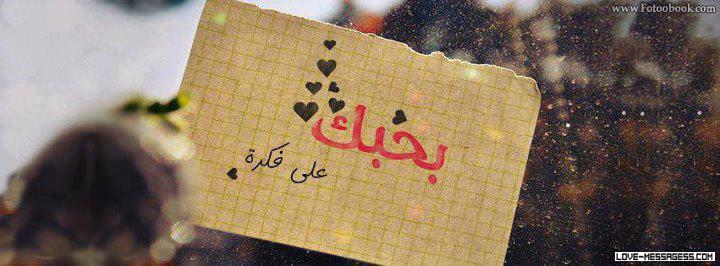 www.Fotoobook.com
بحبك
على فكرة
LOVE-MESSAGESS.COM